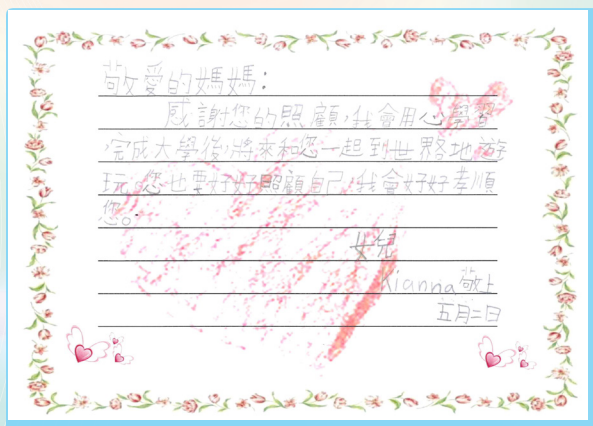 敬愛的媽媽:
感謝您的照顧,我會用心學習
,完成大學後,將來和您一起到世界各地遊
玩,您也要好好照顧自己,我會好好孝順
您。
女兒
Kianna 敬上
五月二日